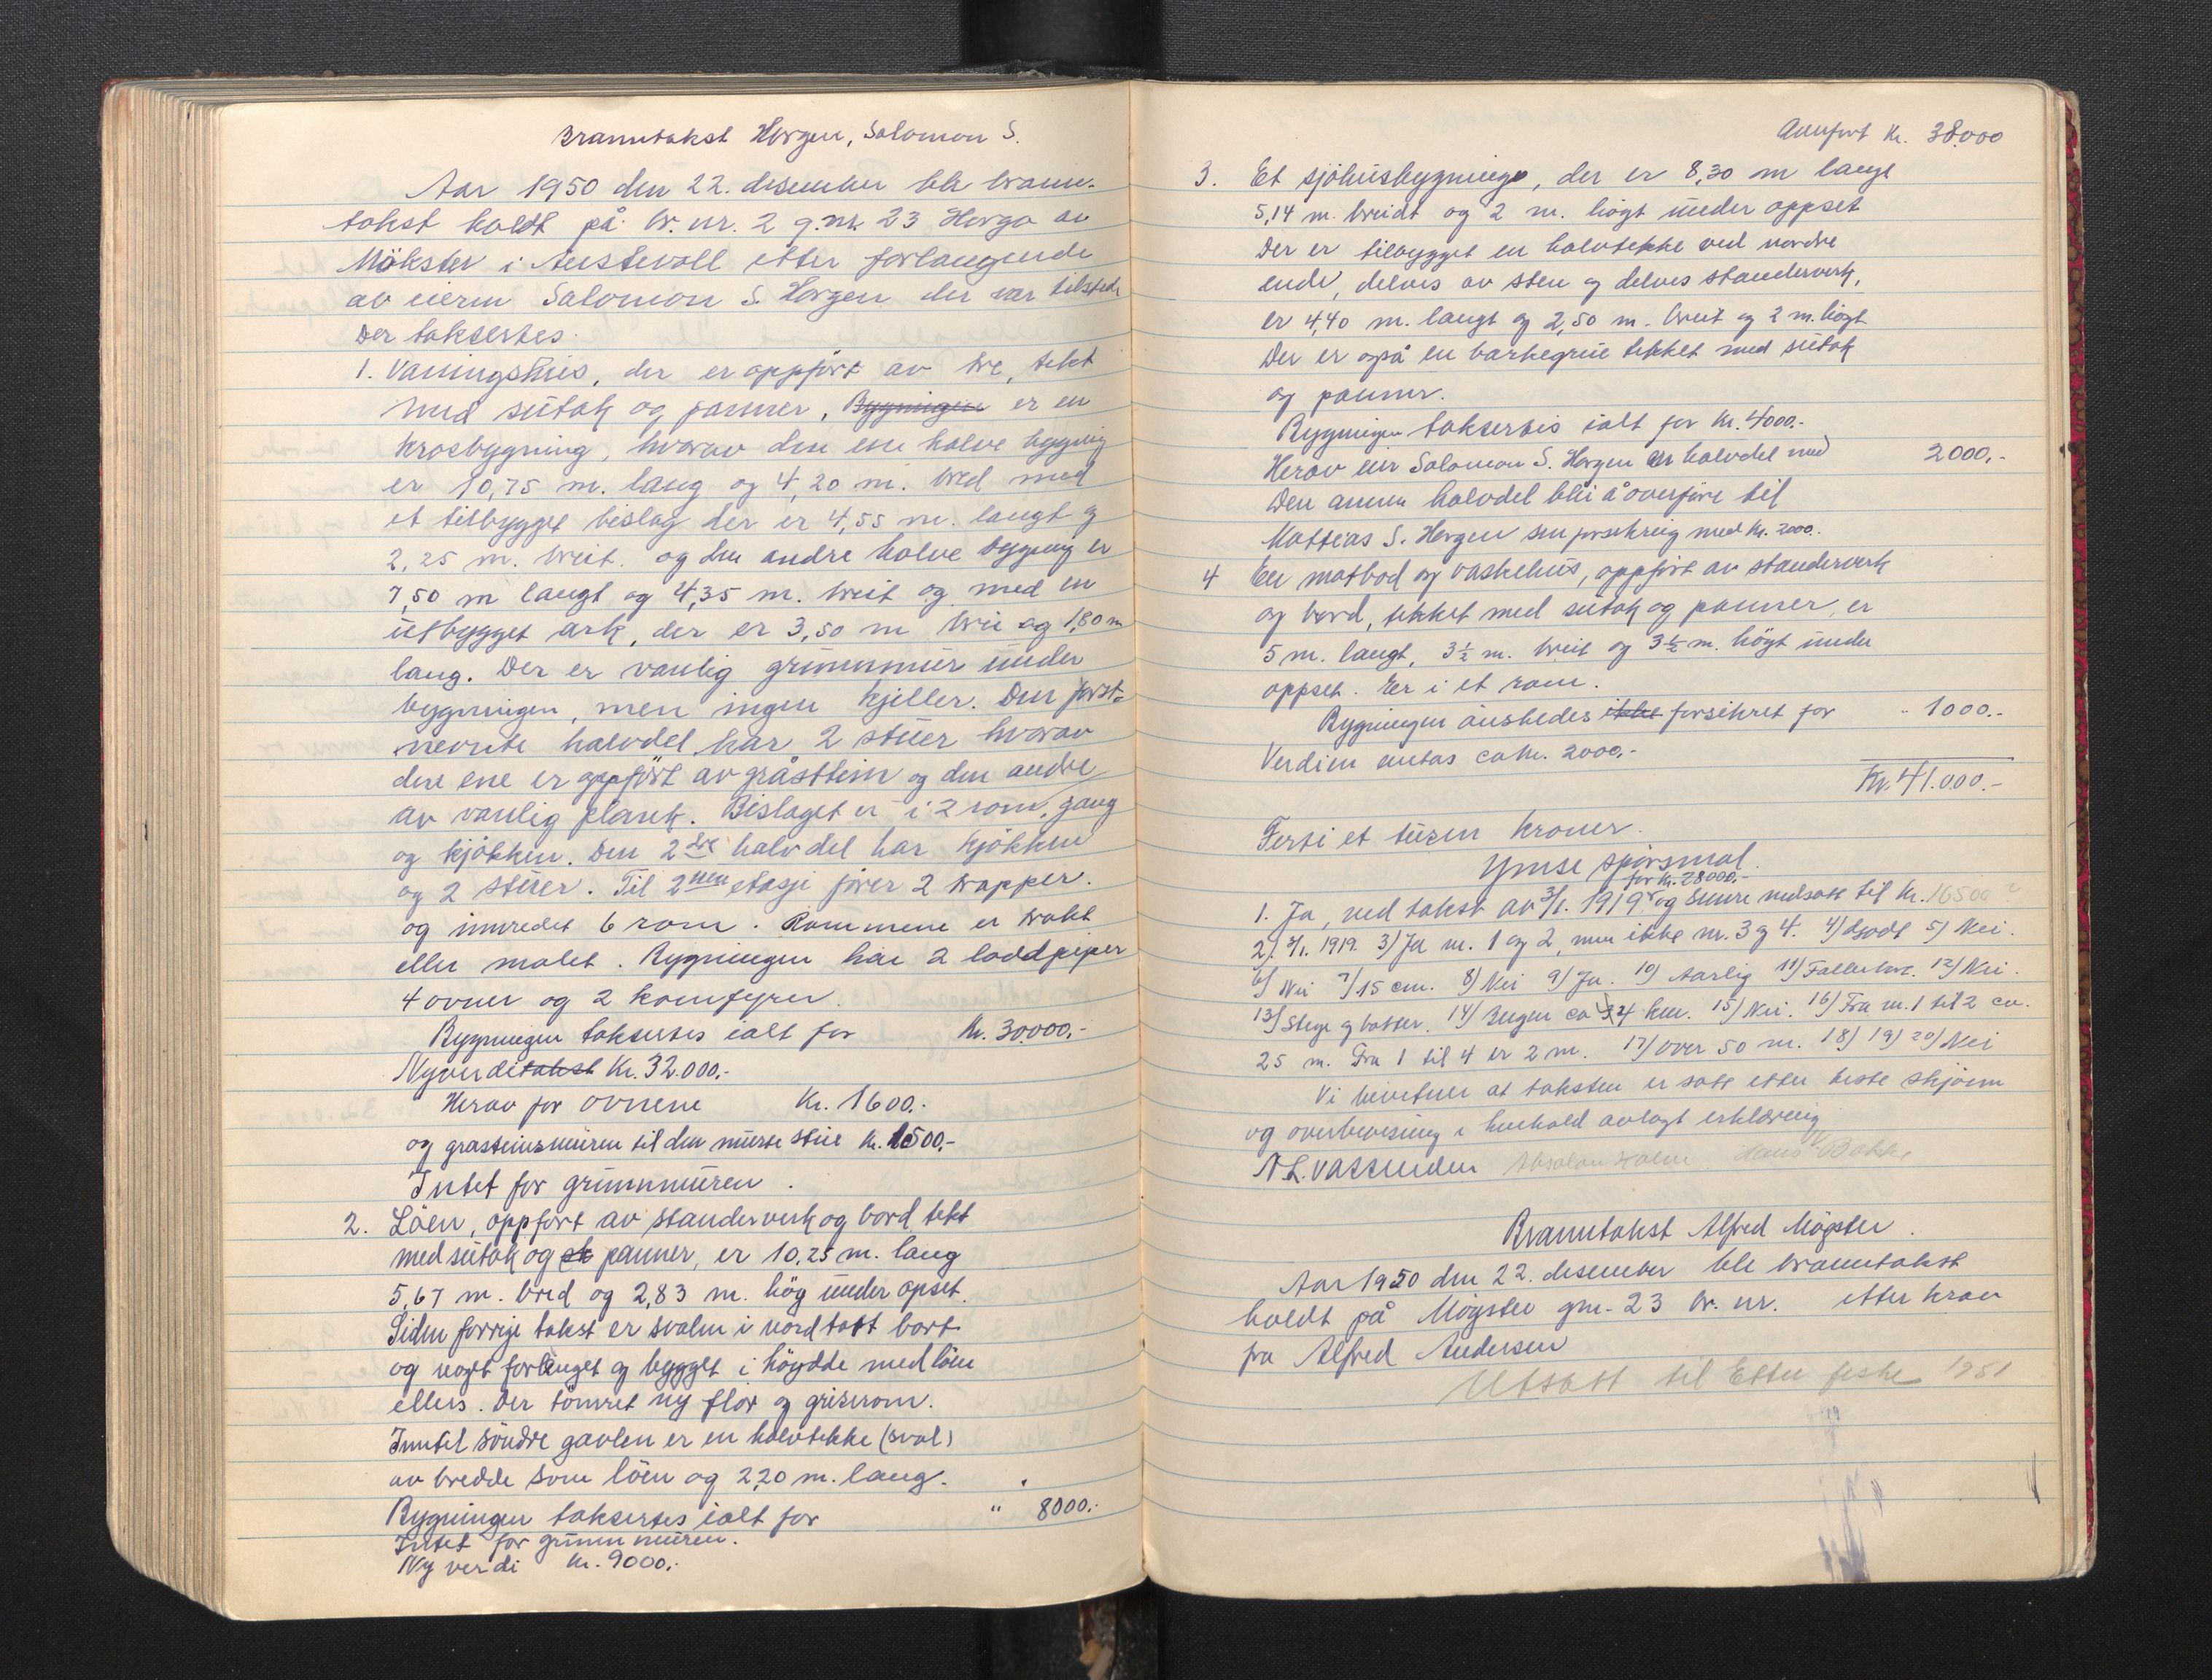 Branntakst Horgen, Salomon S.
Aar 1950 den 22. desember ble brann-
takst holdt på br. nr. 2 g.nr. 23 Horgo av
Mökster i Austevoll etter forlangende
av eieren Salomon S. Horgen der var tilstede
Der taksertes.
1. Vaaningshus, der er oppført av tre, tekt
med sutak og panner, Bygningen er en
krosbygning, hvorav den ene halve bygning
er 10,75 m. lang og 4,20 m. bred med
et tilbygget bislag der er 4,55 m. langt og
2,25 m. breit. og den andre halve bygning er
7,50 m langt og 4,35 m. breit og med en
utbygget ark, der er 3,50 m brei og 1,80 m
lang. Der er vanlig grunnmur under
bygningen, men ingen kjeller. Den först-
nevnte halvdel har 2 stuer hvorav
den ene er oppfört av gråstein og den andre
av vanlig plank. Bislaget er i 2 rom, gang
og kjökken. Den 2dre halvdel har kjökken
og 2 stuer. Til 2nen etasje förer 2 trapper.
og innredet 6 rom. Rommene er trukt
eller malet. Bygningen har 2 loddpiper
4 ovner og 2 komfyrer.
Bygningen taksertes ialt for Kr. 30000,-
Nyverditakst Kr. 32.000,-
Herav for ovnene Kr. 1600.-
og grasteinsmuren til den murte stue Kr. 1500,-
Intet for grunnmuren.
2. Löen, oppfört av standerverk og bord tekt
med sutak og sk panner, er 10,25 m. lang
5,67 m. bred og 2,83 m. hög under opset.
Siden forrige takst er svalen i nord tatt bort
og noget forlenget og bygget i höydde med löen
ellers. Der tömret ny flor og griserom.
Inntil söndre gavlen er en halvtekke (sval)
av bredde som löen og 2,20 m. lang.
Bygningen taksertes ialt for " 8000.-
Intet for grunnmuren.
Ny verdi Kr. 9000.-
Overfört Kr. 38.000
3. Et sjöhusbygning, der er 8,30 m langt
5,14 m. breidt og 2 m. högt under oppset
Der er tilbygget en halvtekke ved nordre
ende, delvis av sten og delvis standerverk,
er 4,40 m. langt og 2,50 m. breit og 2 m. högt
Der er også en barkegrue tekket med sutak
og panner.
Bygningen takseres ialt for Kr. 4000.-
Herav eier Salomon S. Horgen en halvdel med 2000.-
Den annen halvdel blir å overföre til
Mattias S. Horgen sin forsikring med Kr. 2000.
4 En matbod og vaskehus, oppfört av standerverk
og bord, tekket med sutak og panner, er
5 m. langt, 3½ m. breit og 3½ m. högt under
oppset. Er i et rom.
Bygningen önskedes ikke forsikret for " 1000.-
Verdien antas ca Kr. 2000.-
Kr. 41.000.-
Förti et tusen kroner.
Ymse spörsmål.
for Kr. 28000.-
1. Ja, ved takst av 3/1. 1919 og senere nedsatt til Kr. 16500?
2). 3/1. 1919. 3) Ja nr. 1 og 2, men ikke nr. 3 og 4. 4) Godt 5) Nei.
6) Nei 7) 15 cm. 8) Nei 9) Ja. 10) Aarlig 11) 12) Nei.
13) Stige og bötter. 14) Bergen ca 34 km. 15) Nei. 16) Fra nr. 1 til 2 ca.
25 m. Fra 1 til 4 er 2 m. 17) over 50 m. 18) 19) 20) Nei
Vi bevitner at taksten er satt etter beste skjönn
og overbevisning i henhold avlagt erklæring
N L. Vassenden Hans Bakke
Branntakst Alfred Mögster.
Aar 1950 den 22. desember ble branntakst
holdt på Mögster gnr. 23 br. nr. etter krav
fra Alfred Andersen
Utsatt til Etter fiske 1951